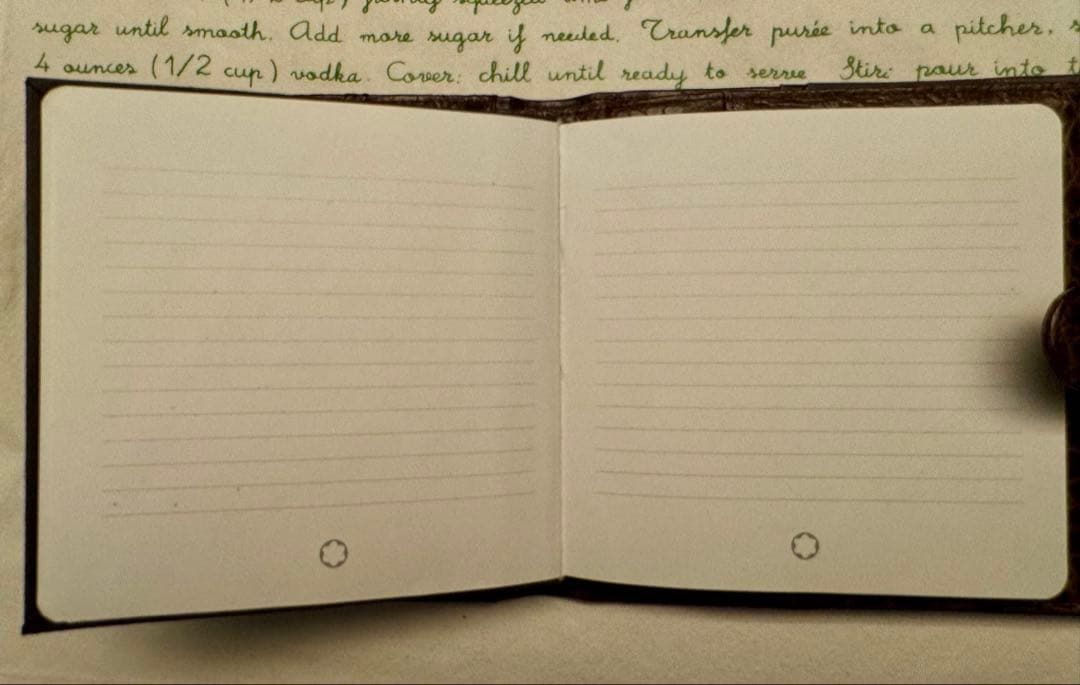 (1/2 cup) freshly squeezed
sugar until smooth. Add more sugar if needed. Transfer purée into a pitcher,
4 ounces (1/2 cup) vodka. Cover: chill until ready to serve Stir: pour into